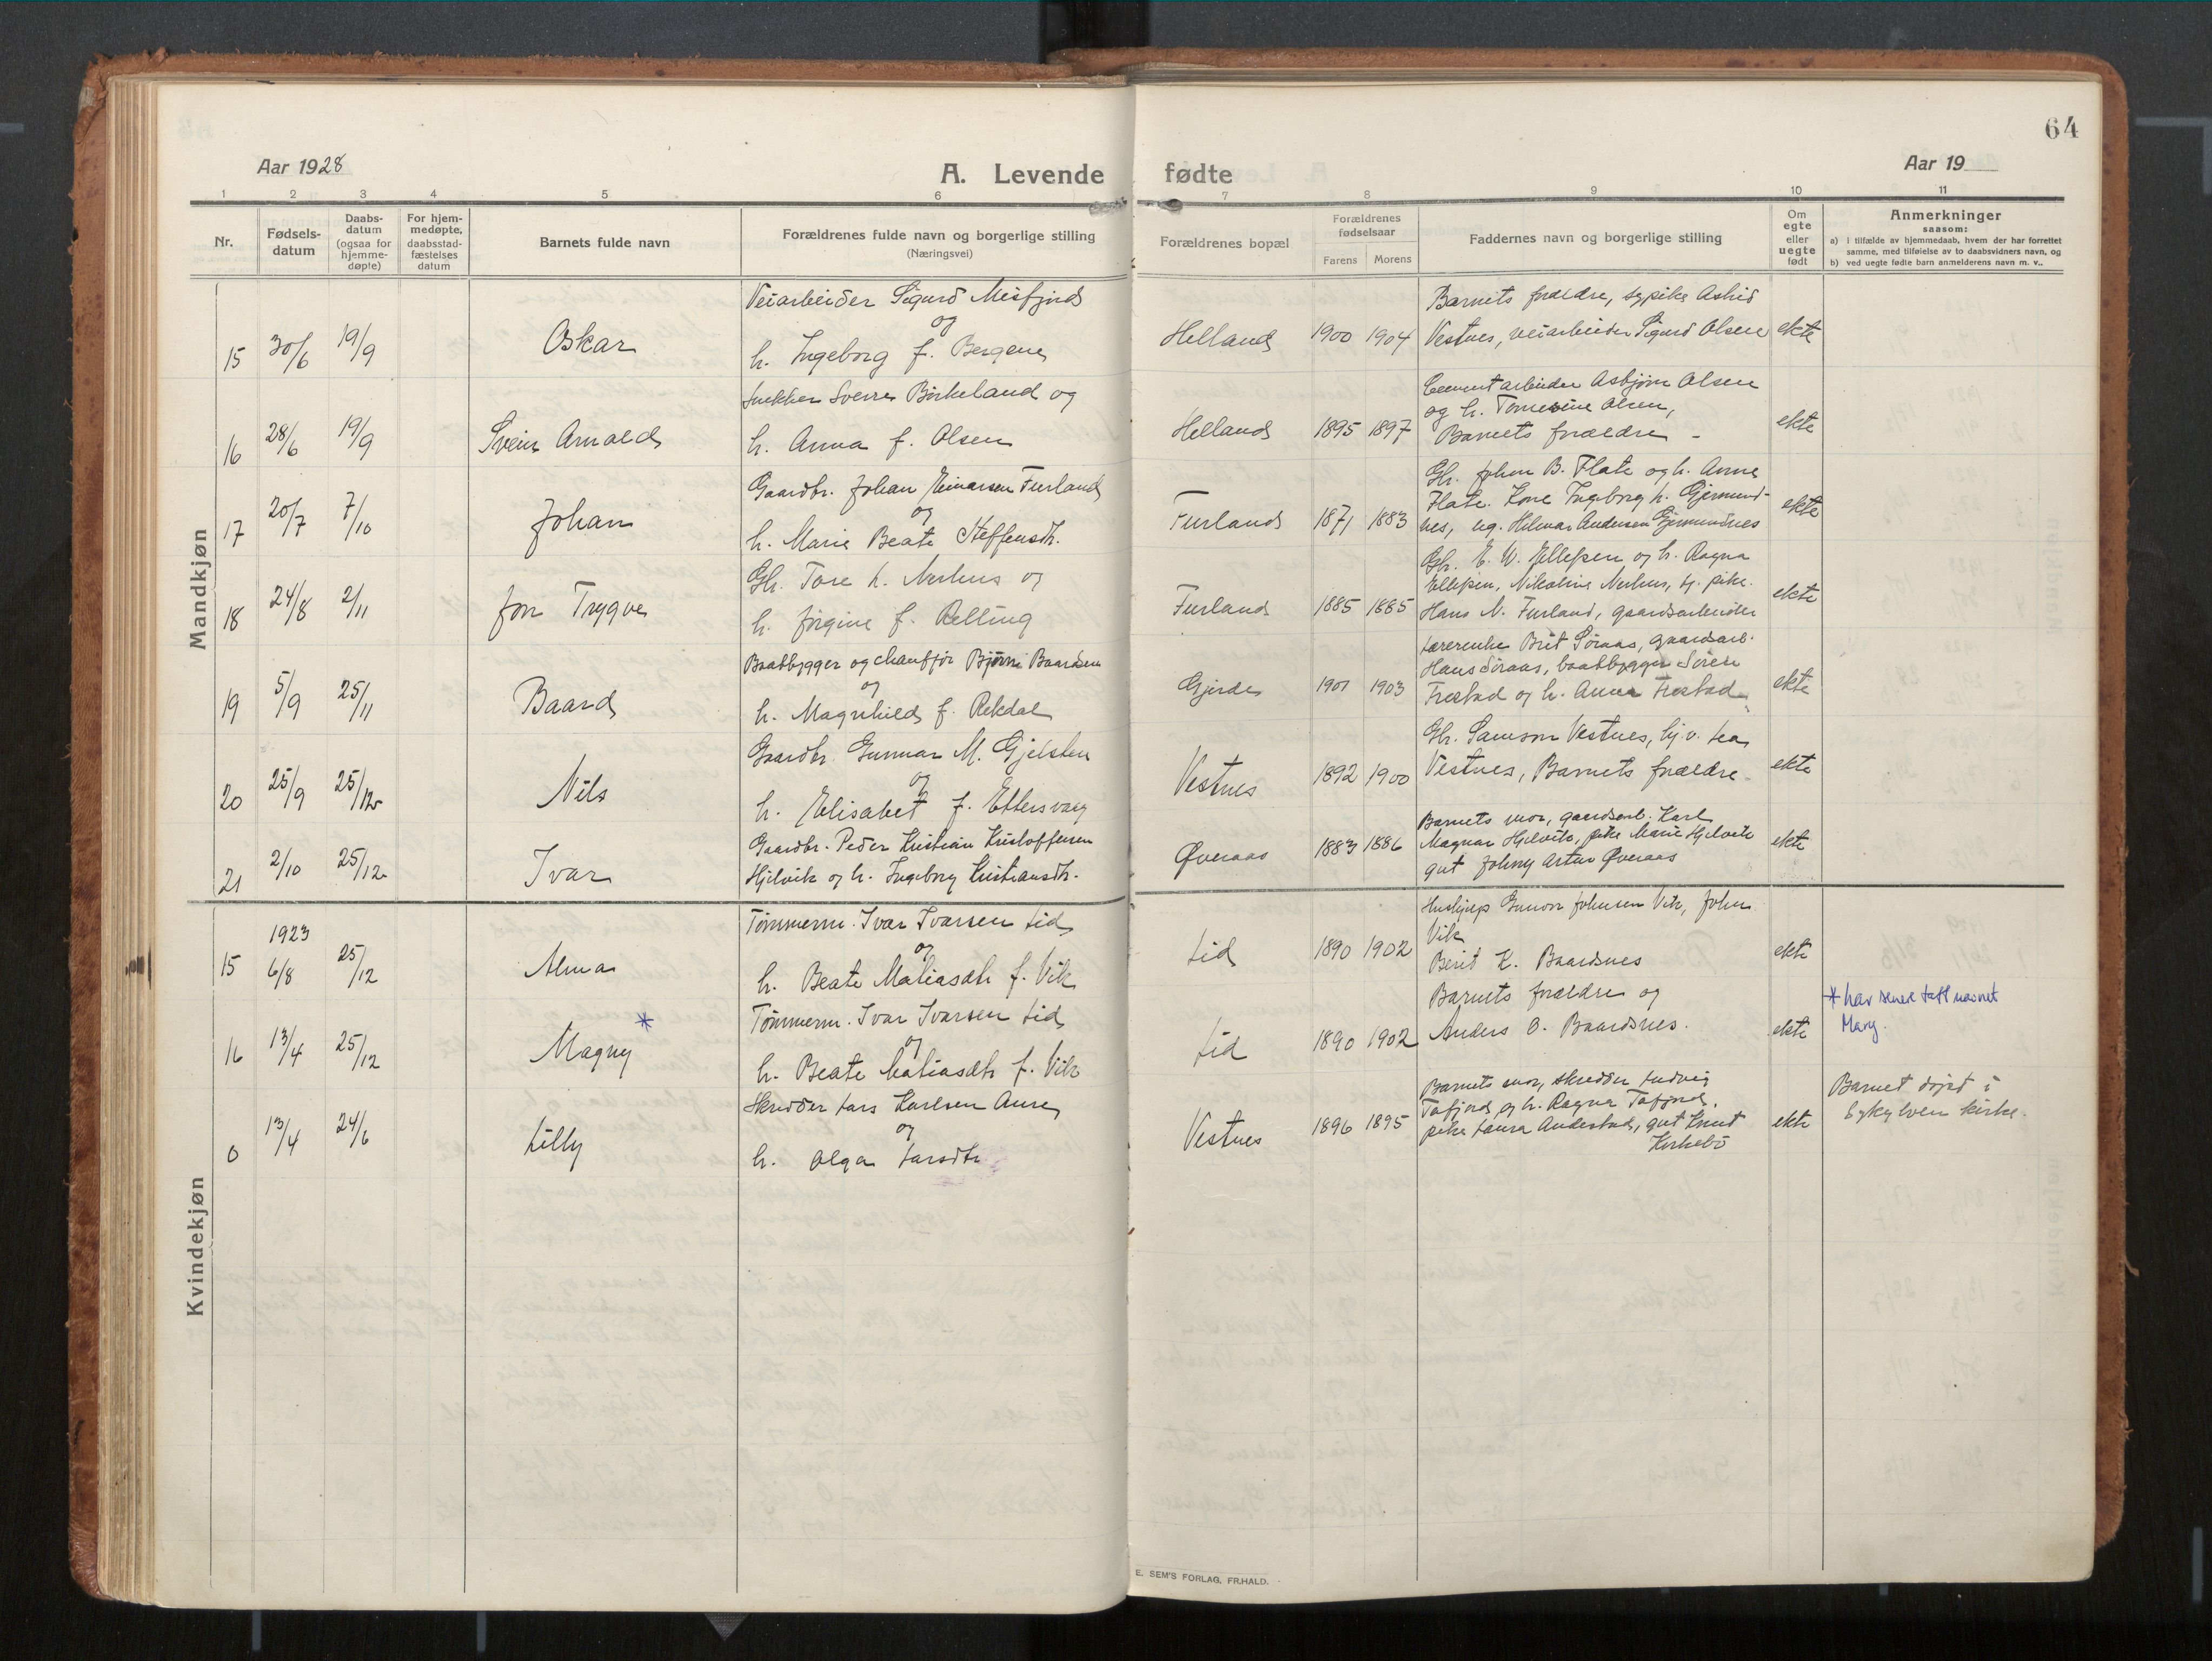 64
Aar 1928
A. Levende fødte
Aar 19
1 2 3 4 5 6 7 8 9 10 11
Nr.
Fødsels-
datum
Daabs-
datum
(ogsaa for
hjemme-
døpte)
For hjem-
medøpte,
daabsstad-
fæstelses
datum
Barnets fulde navn
Forældrenes fulde navn og borgerlige stilling
(Næringsvei)
Forældrenes bopæl
Forældrenes
fødselsaar
Farens Morens
Faddernes navn og borgerlige stilling
Om
egte
eller
uegte
født
Anmerkninger
saasom:
a) i tilfælde av hjemmedaab, hvem der har forrettet
samme, med tilføielse av to daabsvidners navn, og
b) ved uegte fødte barn anmelderens navn m. v..
Mandkjøn
15 30/6 19/9 Oskar
Veiarbeider Sigurd Misfjord
og
h. Ingeborg f. Bergene
Helland 1900 1904
Barnets forældre, sypike Astrid
Vestnes, veiarbeider Sigurd Olsen
ekte
16 28/6 19/9 Svein Arnold
Snekker Sverre Birkeland og
h. Anna f. Olsen
Helland 1895 1897
Cementarbeider Asbjørn Olsen
og h. Tomesine Olsen,
Barnets forældre -
ekte
17 20/7 7/10 Johan
Gaardbr. Johan Einarsen Furland
og
h. Marie Beate Steffensdt.
Furland 1871 1883
Gbr. Johan B. Flate og h. Anne
Flate. Kone Ingeborg h. Gjermund-
nes, ug. Hilmar Andersen Gjermundnes
ekte
18 24/8 2/11 Jon Trygve
Gbr. Tore h. Nerhus og
h. Jørgine f. Relling
Furland 1885 1885
Gbr. E. W. Ellefsen og h. Ragna
Ellefsen, Nikoline Nerhus, sy. pike.
Hans N. Furland, gaardsarbeider
ekte
19 5/9 25/11 Baard
Baatbygger og chauffør Bjørn Baardsen
og
h. Magnhild f. Rekdal
Gjerde 1901 1903
Lærerenke Brit Søraas, gaardsarb.
Hans Søraas, baatbygger Søren
Frostad og h. Anna Frostad
ekte
20 25/9 25/12 Nils
Gaardbr. Gunnar M. Gjelsten
og
h. Elisabet f. Ellersvaag
Vestnes 1892 1900
Gbr. Samson Vestnes, hj.v. Lea
Vestnes, Barnets forældre
ekte
21 2/10 25/12 Ivar
Gaardbr. Peder Kristian Kristoffersen
Hjelvik og h. Ingeborg Kristiansdt.
Øveraas 1883 1886
Barnets mor, gaardsarb. Karl
Magnar Hjelvik, pike Marie Hjelvik
gut Johny Artur Øveraas
ekte
Kvindekjøn
15 1923 6/8 25/12 Alma
Tømmerm. Ivar Ivarsen Lid
og
h. Beate Matiasdt. f. Vik
Lid 1890 1902
Hushjelp Gunvor Johnsen Vik, John
Vik
Berit K. Baardsnes
ekte
16 13/4 25/12 Magny *
Tømmerm. Ivar Ivarsen Lid
og
h. Beate Matiasdt. f. Vik
Lid 1890 1902
Barnets forældre og
Anders O. Baardsnes.
ekte
* har senere tatt navnet
Mary.
0 13/4 24/6 Lilly
Skredder Lars Karlsen Aure
og
h. Olga Larsdt.
Vestnes 1896 1895
Barnets mor, skredder Ludvig
Tafjord og h. Ragna Tafjord,
pike Laura Andestad, gut Knut
Kirkebö
ekte
Barnet døpt i
Sykylven kirke.
E. SEM'S FORLAG, FR.HALD.